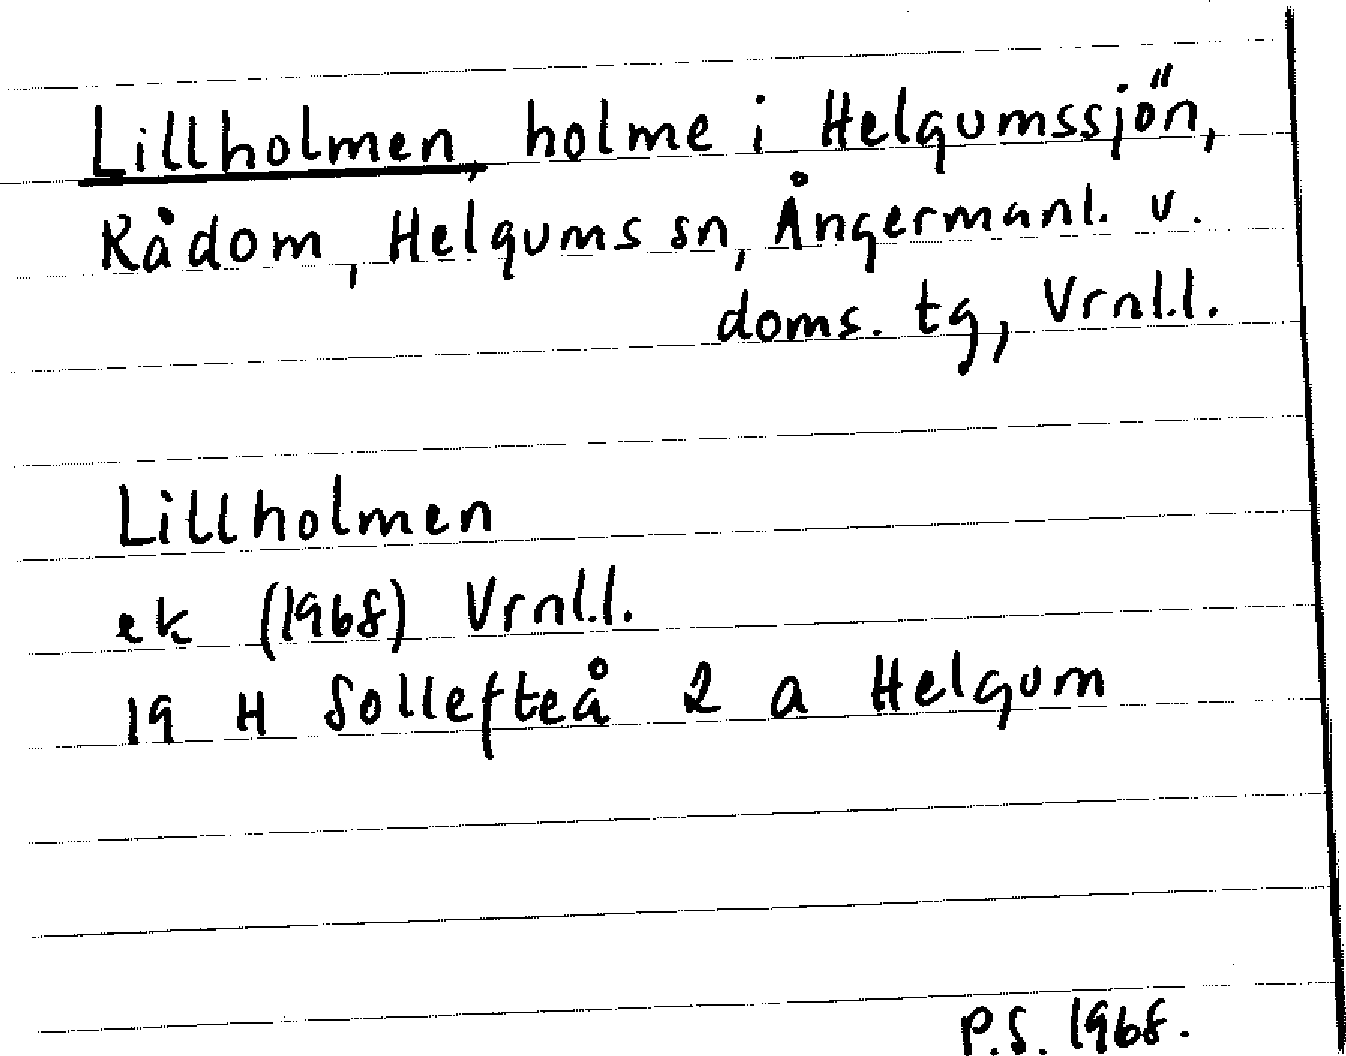 Lillholmen, holme i Helgumssjön,
Rådom, Helgums sn, Ångermanl. v.
doms. tg, Vrnl.l.
Lillholmen
ek (1968) Vrnl.l.
19 H Sollefteå 2 a Helgum
P.S. 1968.